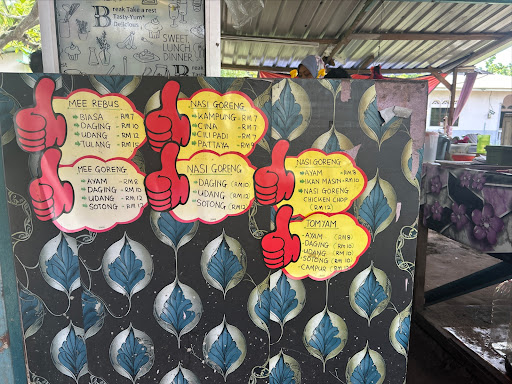 Break Take a rest
Tasty Yum*
Delicious
SWEET
LUNCH
DINNER
Break
MEE REBUS
BIASA - RM 7
DAGING - RM 10
UDANG - RM 12
TULANG - RM 15
MEE GORENG
AYAM - RM 8
DAGING - RM 10
UDANG - RM 12
SOTONG - RM 12
NASI GORENG
KAMPUNG - RM 7
CINA - RM 7
CILI PADI - RM 7
PATTAYA - RM 7
NASI GORENG
DAGING (RM 10)
UDANG (RM 12)
SOTONG (RM 12)
NASI GORENG
AYAM - RM 8
IKAN MASIN - RM 8
NASI GORENG
CHICKEN CHOP
(RM 12)
TOMYAM
- AYAM (RM 8)
- DAGING (RM 10)
- UDANG (RM 12)
- SOTONG (RM 12)
- CAMPUR (RM 12)